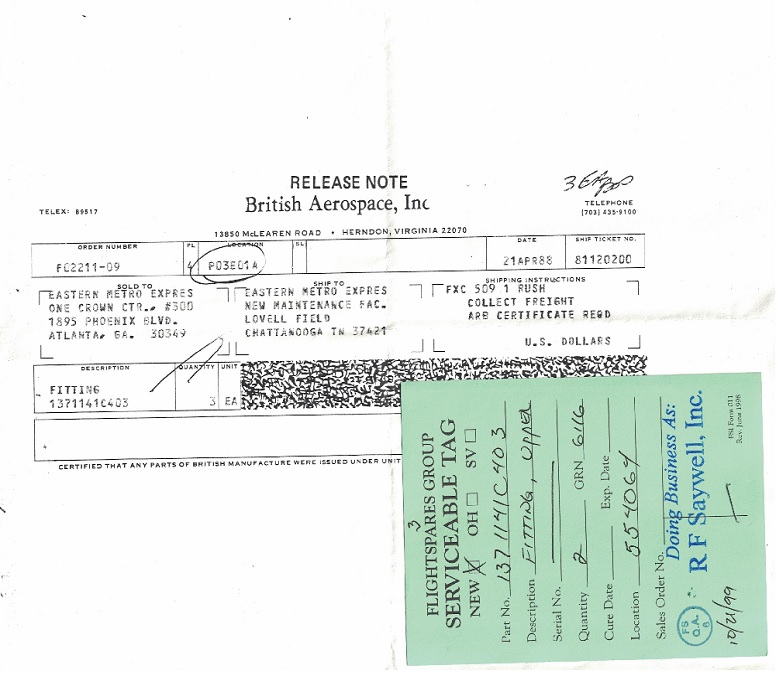 RELEASE NOTE
3 EA
TELEX: 89517
British Aerospace, Inc
TELEPHONE
(703) 435-9100
13850 McLEAREN ROAD • HERNDON, VIRGINIA 22070
ORDER NUMBER PL LOCATION SL DATE SHIP TICKET NO.
FC2211-09 4 P03E01A 21APR88 81120200
SOLD TO SHIP TO SHIPPING INSTRUCTIONS
EASTERN METRO EXPRES EASTERN METRO EXPRES FXC 509 1 RUSH
ONE CROWN CTR., #300 NEW MAINTENANCE FAC. COLLECT FREIGHT
1895 PHOENIX BLVD. LOVELL FIELD ARB CERTIFICATE REQD
ATLANTA, GA. 30349 CHATTANOOGA TN 37421
U.S. DOLLARS
DESCRIPTION QUANTITY UNIT
FITTING
1371141C403 3 EA
CERTIFIED THAT ANY PARTS OF BRITISH MANUFACTURE WERE ISSUED UNDER UNIT
3
FLIGHTSPARES GROUP
SERVICEABLE TAG
NEW X OH SV
Part No. 1371141C403
Description FITTING, UPPER
Serial No.
Quantity 2 GRN 6116
Cure Date Exp. Date
Location 554064
Sales Order No.
Doing Business As:
R F Saywell, Inc.
FS
Q.A.
8
10/21/99
FSI Form 011
Rev. June 1998